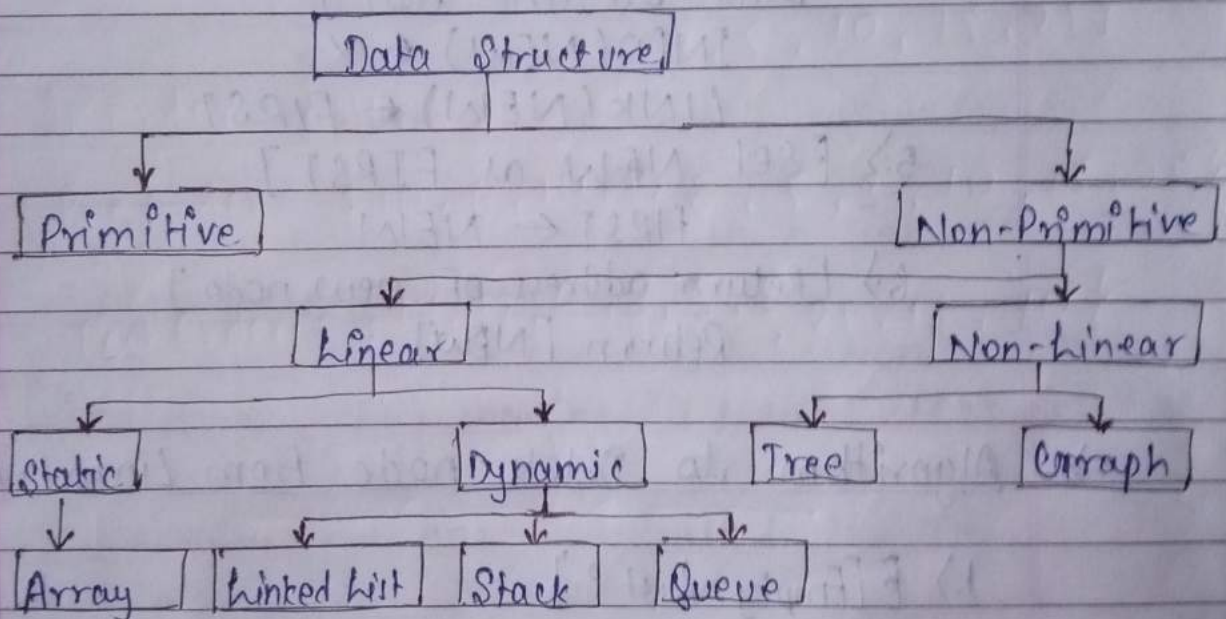 Data Structure
Primitive Non-Primitive
Linear Non-Linear
Static Dynamic Tree Graph
Array Linked List Stack Queue